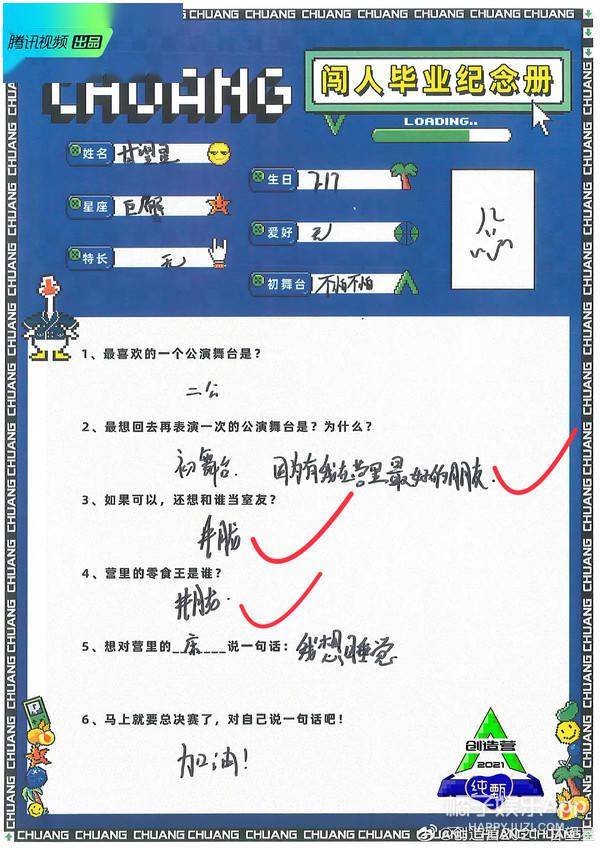 腾讯视频 出品
CHUANG
闯人毕业纪念册
LOADING..
姓名 甘望星
生日 7.17
星座 巨蟹
爱好 无
特长 无
初舞台 不怕不怕
1、最喜欢的一个公演舞台是？
二公
2、最想回去再表演一次的公演舞台是？为什么？
初舞台. 因为有我在营里最好的朋友.
3、如果可以，还想和谁当室友？
井胧
4、营里的零食王是谁？
井胧.
5、想对营里的__床____说一句话：我想睡觉
6、马上就要总决赛了，对自己说一句话吧！
加油！
创造营
2021
纯甄
橘子娱乐App
HAPPYJUZI.COM
CHUANG CHUANG CHUANG CHUANG CHUANG CHUANG CHUANG CHUANG CHUANG